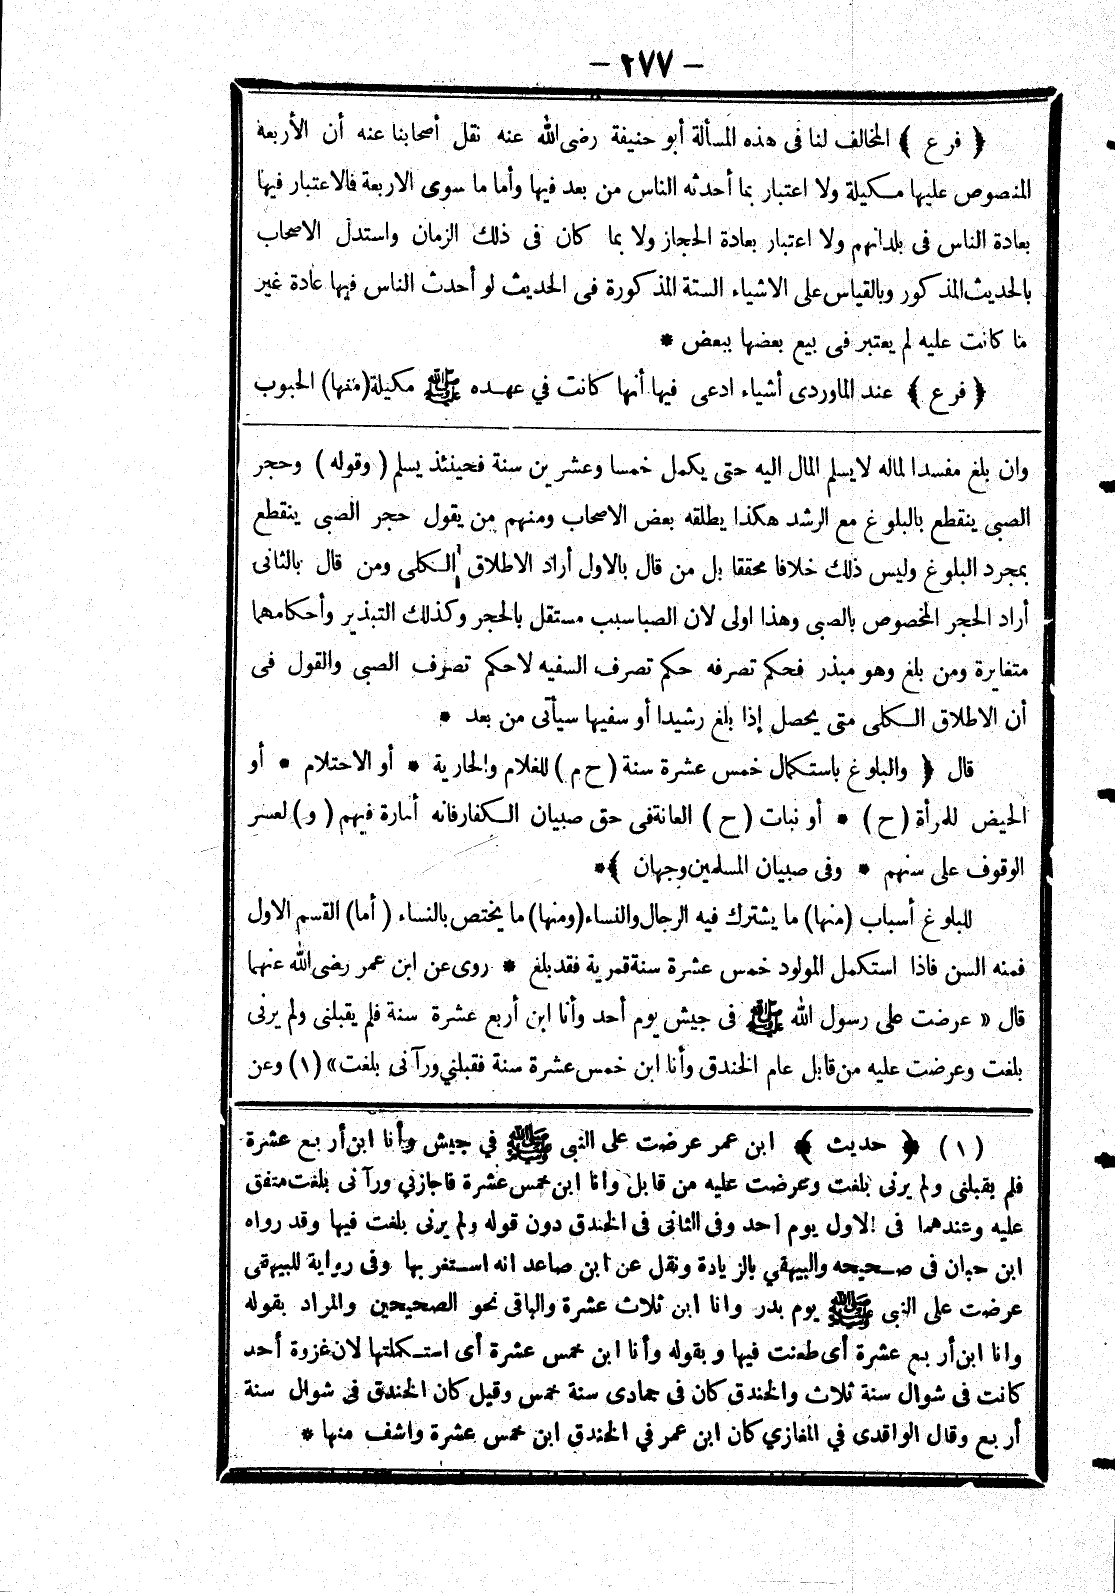 — ٢٧٧ —
﴿ فرع ﴾ المخالف لنا فى هذه المسألة أبو حنيفة رضى الله عنه نقل أصحابنا عنه أن الأربعة
المنصوص عليها مكيلة ولا اعتبار بما أحدثه الناس من بعد فيها وأما ما سوى الاربعة فالاعتبار فيها
بعادة الناس فى بلدانهم ولا اعتبار بعادة الحجاز ولا بما كان فى ذلك الزمان واستدل الاصحاب
بالحديث المذكور وبالقياس على الاشياء الستة المذكورة فى الحديث لو أحدث الناس فيها عادة غير
ما كانت عليه لم يعتبر فى بيع بعضها ببعض *
﴿ فرع ﴾ عند الماوردى أشياء ادعى فيها أنها كانت في عهده ﷺ مكيلة (منها) الحبوب
وان بلغ مفسدا لماله لايسلم المال اليه حتى يكمل خمسا وعشرين سنة فحينئذ يسلم ( وقوله ) وحجر
الصبى ينقطع بالبلوغ مع الرشد هكذا يطلقه بعض الاصحاب ومنهم من يقول حجر الصبى ينقطع
بمجرد البلوغ وليس ذلك خلافا محققا بل من قال بالاول أراد الاطلاق الكلى ومن قال بالثانى
أراد الحجر المخصوص بالصبى وهذا اولى لان الصبا سبب مستقل بالحجر وكذلك التبذير وأحكامهما
متغايرة ومن بلغ وهو مبذر فحكم تصرفه حكم تصرف السفيه لاحكم تصرف الصبى والقول فى
أن الاطلاق الكلى متى يحصل إذا بلغ رشيدا أو سفيها سيأتى من بعد *
قال ﴿ والبلوغ باستكمال خمس عشرة سنة ( ح م ) للغلام والجارية * أو الاحتلام * أو
الحيض للمرأة ( ح ) * أو نبات ( ح ) العانة فى حق صبيان الكفار فانه أمارة فيهم ( و ) لعسر
الوقوف على سنهم * وفى صبيان المسلمين وجهان ﴾*
للبلوغ أسباب (منها) ما يشترك فيه الرجال والنساء (ومنها) ما يختص بالنساء ( أما) القسم الاول
فمنه السن فاذا استكمل المولود خمس عشرة سنة قمرية فقد بلغ * روى عن ابن عمر رضى الله عنهما
قال « عرضت على رسول الله ﷺ فى جيش يوم أحد وأنا ابن أربع عشرة سنة فلم يقبلنى ولم يرنى
بلغت وعرضت عليه من قابل عام الخندق وأنا ابن خمس عشرة سنة فقبلني ورآنى بلغت» (١) وعن
(١) ﴿ حديث ﴾ ابن عمر عرضت على النبى ﷺ في جيش وأنا ابن أربع عشرة
فلم يقبلنى ولم يرنى بلغت وعرضت عليه من قابل وانا ابن خمس عشرة فاجازني ورآنى بلغت متفق
عليه وعندهما فى الاول يوم احد وفى الثانى فى الخندق دون قوله ولم يرنى بلغت فيها وقد رواه
ابن حبان فى صحيحه والبيهقي بالزيادة ونقل عن ابن صاعد انه استغربها وفى رواية للبيهقى
عرضت على النبى ﷺ يوم بدر وانا ابن ثلاث عشرة والباقى نحو الصحيحين والمراد بقوله
وانا ابن أربع عشرة أى طعنت فيها وبقوله وأنا ابن خمس عشرة أى استكملتها لان غزوة أحد
كانت فى شوال سنة ثلاث والخندق كان فى جمادى سنة خمس وقيل كان الخندق فى شوال سنة
أربع وقال الواقدى في المغازي كان ابن عمر في الخندق ابن خمس عشرة واشف منها *